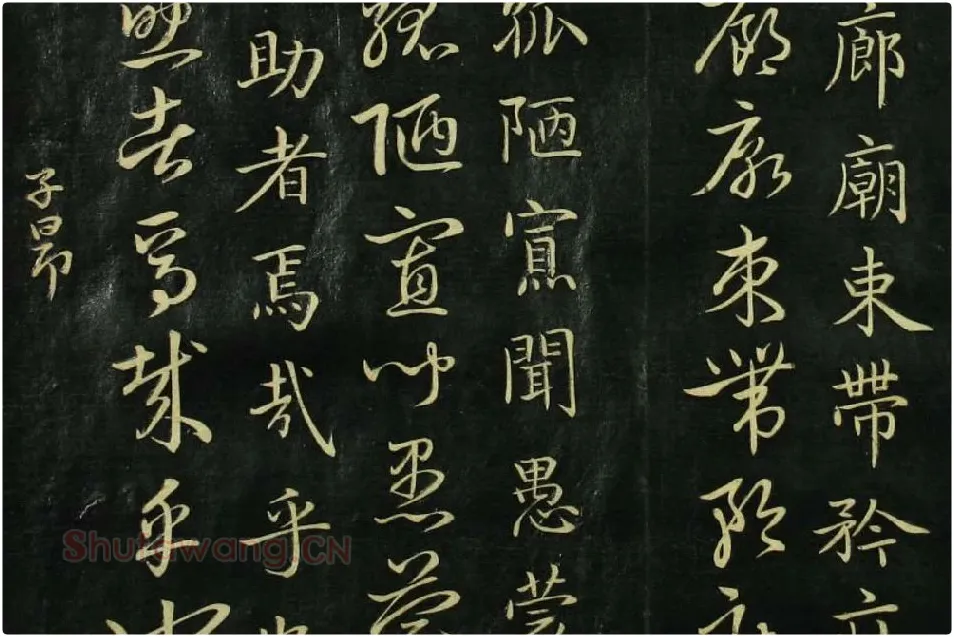 廊廟束帶矜
廊廟束帶矜
孤陋寡聞愚蒙
孤陋寡聞愚蒙
助者焉哉乎也
助者焉哉乎也
子昂
Shufawang.CN